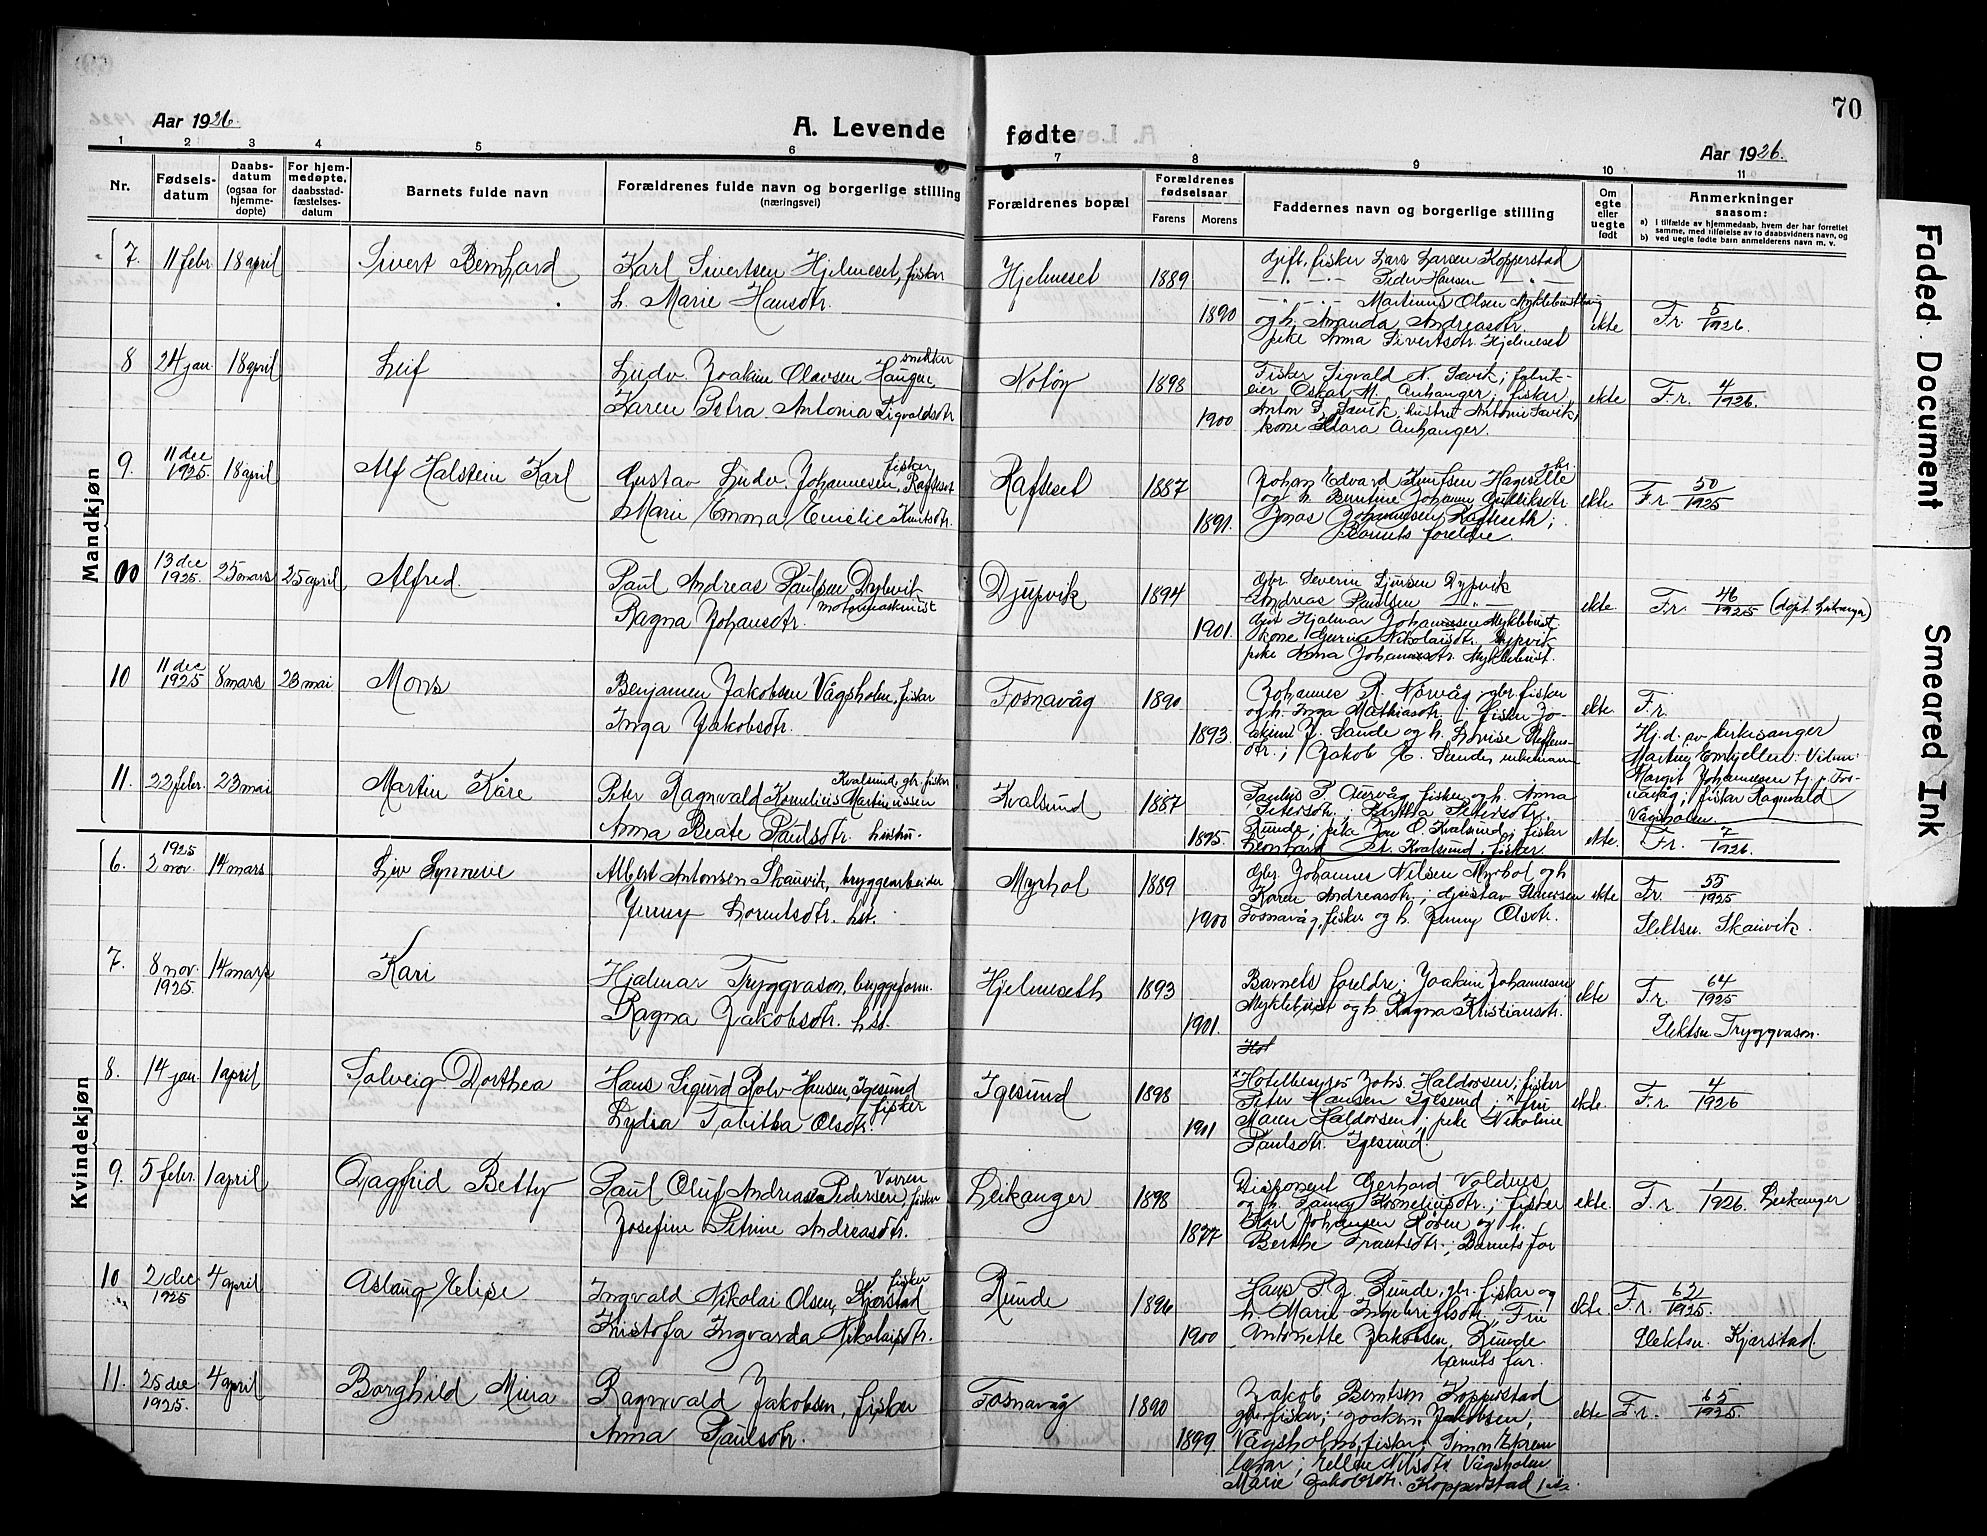 70
Aar 1926.
A. Levende fødte
Aar 1926.
1 2 3 4 5 6 7 8 9 10 11
Nr.
Fødsels-
datum
Daabs-
datum
(ogsaa for
hjemme-
døpte)
For hjem-
medøpte,
daabsstad-
fæstelses-
datum
Barnets fulde navn
Forældrenes fulde navn og borgerlige stilling
(næringsvei)
Forældrenes bopæl
Forældrenes
fødselsaar
Farens Morens
Faddernes navn og borgerlige stilling
Om
egte
eller
uegte
født
Anmerkninger
saasom:
a) I tilfælde av hjemmedaab, hvem der har forrettet
samme, med tilføielse av to daabsvidners navn, og
b) ved uegte fødte barn anmelderens navn m. v.
Mandkjøn
7. 11 febr. 18 april
Sivert Bernhard
Karl Sivertsen Hjelmeset, fisker
h. Marie Hansdtr.
Hjelmeset
1889
1890
Gift, fisker Lars Larsen Kopperstad
Peder Hansen
Martinus Olsen Myklebustbung
og h. Amanda Andreasdtr.
pike Anna Sivertsdtr. Hjelmeset
ekte
F.r. 5/1926.
8 24 jan. 18 april
Leif
Ludv. Joakim Olavsen Haugen, snekker
Karen Petra Antonia Sigvaldsdtr
Notøy
1898
1900
Fisker Sigvald N. Sævik; fabrik-
eier Oskar M. Anhanger; fisker
Anton D. Sævik, hustru Antonie Sævik,
kone Klara Anhanger.
ekte
F.r. 4/1926.
9. 11 dec 1925 18 april
Alf Halstein Karl
Gustav Ludv. Johannesen Rafteset, fisker
Marie Emma Emelie Knutsdtr.
Rafteset
1887
1891.
Johan Edvard Knutsen Hageselle gbr.
og h. Berntine Johanne
Jonas Johannesen Rafteseth;
Barnets foreldre.
ekte
F.r. 50/1925
13 dec 1925. 25 mars 25 april
Alfred.
Paul Andreas Paulsen Dypvik
motormaskinist
Ragna Johansdtr.
Djupvik
1894
1901.
Gbr. Severin Sjursen Dypvik
Andreas Paulsen
Gbr. Hjalmar Johannessen Myklebust,
kone Gurine Nikolaisdtr. Dypvik,
pike Anna Johannesdtr. Myklebust.
ekte
F.r. 46/1925 (døpt Leikanger)
10 11 dec 1925 8 mars 23 mai
Mons
Benjamen Jakobsen Vågsholm, fisker
Inga Jakobsdtr.
Fosnavåg
1890
1893.
Johannes R. Nørvåg, gbr. fisker
og h. Inga Mathiasdtr. fisker Jo-
akim J. Sande og h. Lovise Steffens-
dtr.; Jakob Sande, unkemann
ekte.
F.r.
Hj.d. av kirkesanger
Martin Emhjellen. Vidner:
Marget Johannesen hj. p. Fos-
navåg; fisker Ragnvald
Vågsholm.
11. 22 febr. 23 mai
Martin Kåre
Kvalsund, gbr. fisker
Peter Ragnvald Kornelius Martinussen
Anna Beate Paulsdtr. hustru.
Kvalsund
1887
1895.
Paulus P. Aurvåg, fisker og h. Anna
Petersdtr.; Berthe Petersdtr.
Runde; pike Jon O. Kvalsund; fisker
Leonhard Kvalsund, fisker.
ekte.
F.r. 7/1926.
Kvindekjøn
6. 1925 2 nov. 14 mars
Liv Synneve
Albert Antonsen Skauvik, bryggearbeider
Jenny Lorentsdtr. hst.
Myrhol
1889
1900
Gbr. Johannes Nilsen Myrhol og h
Karen Andreasdtr.; Gustav Petersen
Fosnavåg, fisker og h. Jenny Olsdtr.
ekte
F.r. 55/1925
Slektsn. Skauvik.
7. 8 nov. 1925. 14 mars
Kari
Hjalmar Tryggvason, bryggeform.
Ragna Jakobsdtr. hst.
Hjelmeseth
1893
1901.
Barnets foreldre; Joakim Johannesen
Myklebust og h. Ragna Kristiansdtr.
ekte
F.r. 64/1925
Slektsn Tryggvason.
8. 14 jan. 1 april
Solveig Dorthea
Hans Sigurd Rolv Hansen, Igesund
fisker
Lydia Tabitha Olsdtr.
Igesund
1898
1901
Hot
Hotelbestyrer Johs. Haldorsen; fisker
Peter Hansen Igesund; fru
Maren Haldorsen; pike Nikoline
Paulsdtr. Igesund.
ekte.
F.r. 4/1926
9. 5 febr. 1 april
Dagfrid Betty
Paul Oluf Andreas Pedersen Vorren, fisker
Josefine Petrine Andreasdtr.
Leikanger
1898
1877
Disponent Gerhard Voldnes
og h. Fanny Korneliusdtr.; fisker
Karl Johansen Røren og h.
Berthe Frantsdtr.; Barnets far
ekte.
F.r. 1/1926. Leikanger
10 2 dec 1925 4 april
Aslaug Elise
Ingvald Nikolai Olsen, Kjærstad fisker
Kristofa Ingvarda Nikolaisdtr.
Runde
1896
1900
Hans P. J. Runde, gbr. fisker og
h. Marie Ingebrigtsdtr., Fru
Antonette Jakobsen, Runde
barnets far.
ekte
F.r. 62/1925.
Slektsn. Kjærstad
11. 25 dec 1925. 4 april
Borghild Mira
Ragnvald Jakobsen, fisker
Anna Paulsdtr.
Fosnavåg
1890
1899
Jakob Berntsen Kopperstad
gbr. fisker; Joakim Jakobsen,
Vågsholm, fisker; Simon Ekrem
; Ellen Nilsdtr Vågsholm
Marie Jakobsdtr. Kopperstad
ekte
F.r. 65/1925.
Faded Document
Smeared Ink